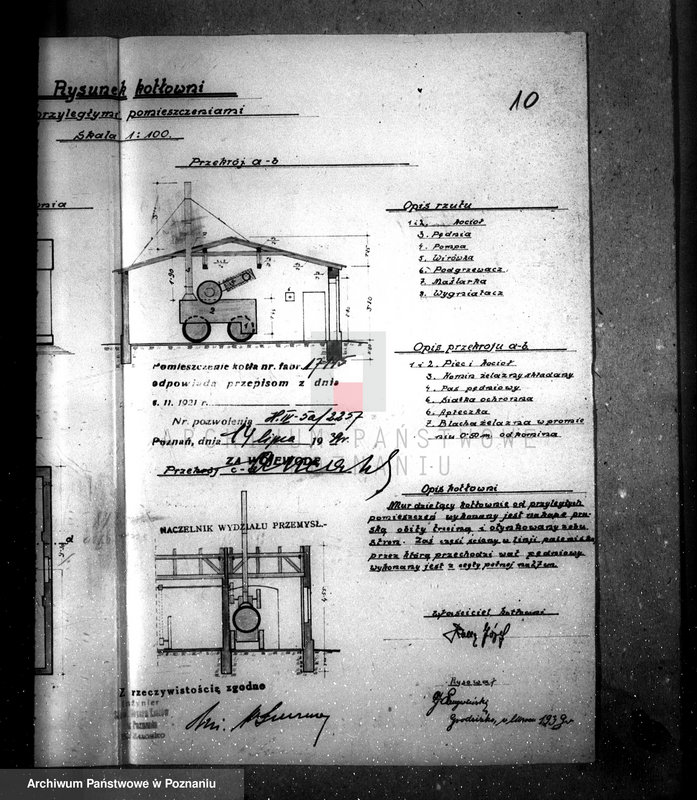 10
Rysunek kotłowni
przyległymi pomieszczeniami
Skala 1:100.
Przekrój a-b
Opis rzutu
1 i 2. kocioł
3. Pędnia
4. Pompa
5. Wirówka
6. Podgrzewacz
7. Maślarka
8. Wygniatacz
Opis przekroju a-b.
1 i 2. Piec i kocioł
3. Komin żelazny składany
4. Pas pędniowy
5. Siatka ochronna
6. Apteczka
7. Blacha żelazna w promie
niu 0.50 m. od komina
Pomieszczenie kotła nr. fabr.
odpowiada przepisom z dnia
8. 11. 1921 r.
Nr. pozwolenia H.III-5a/2257
Poznań, dnia 14 lipca 1939r.
ZA WOJEWODĘ
Przekrój c-d
NACZELNIK WYDZIAŁU PRZEMYSŁ.-
Opis kotłowni
Mur dzielący kotłownie od przyległych
pomieszczeń wykonany jest
obity trzciną i otynkowany z obu
stron. Zaś część ściany w linji
przez którą przechodzi wał pędniowy
wykonany jest z cegły pełnej
Właściciel kotłowni
Rysował
1939r
Z rzeczywistością zgodne
Inżynier
ARCHIWUM PAŃSTWOWE
W POZNANIU
Archiwum Państwowe w Poznaniu